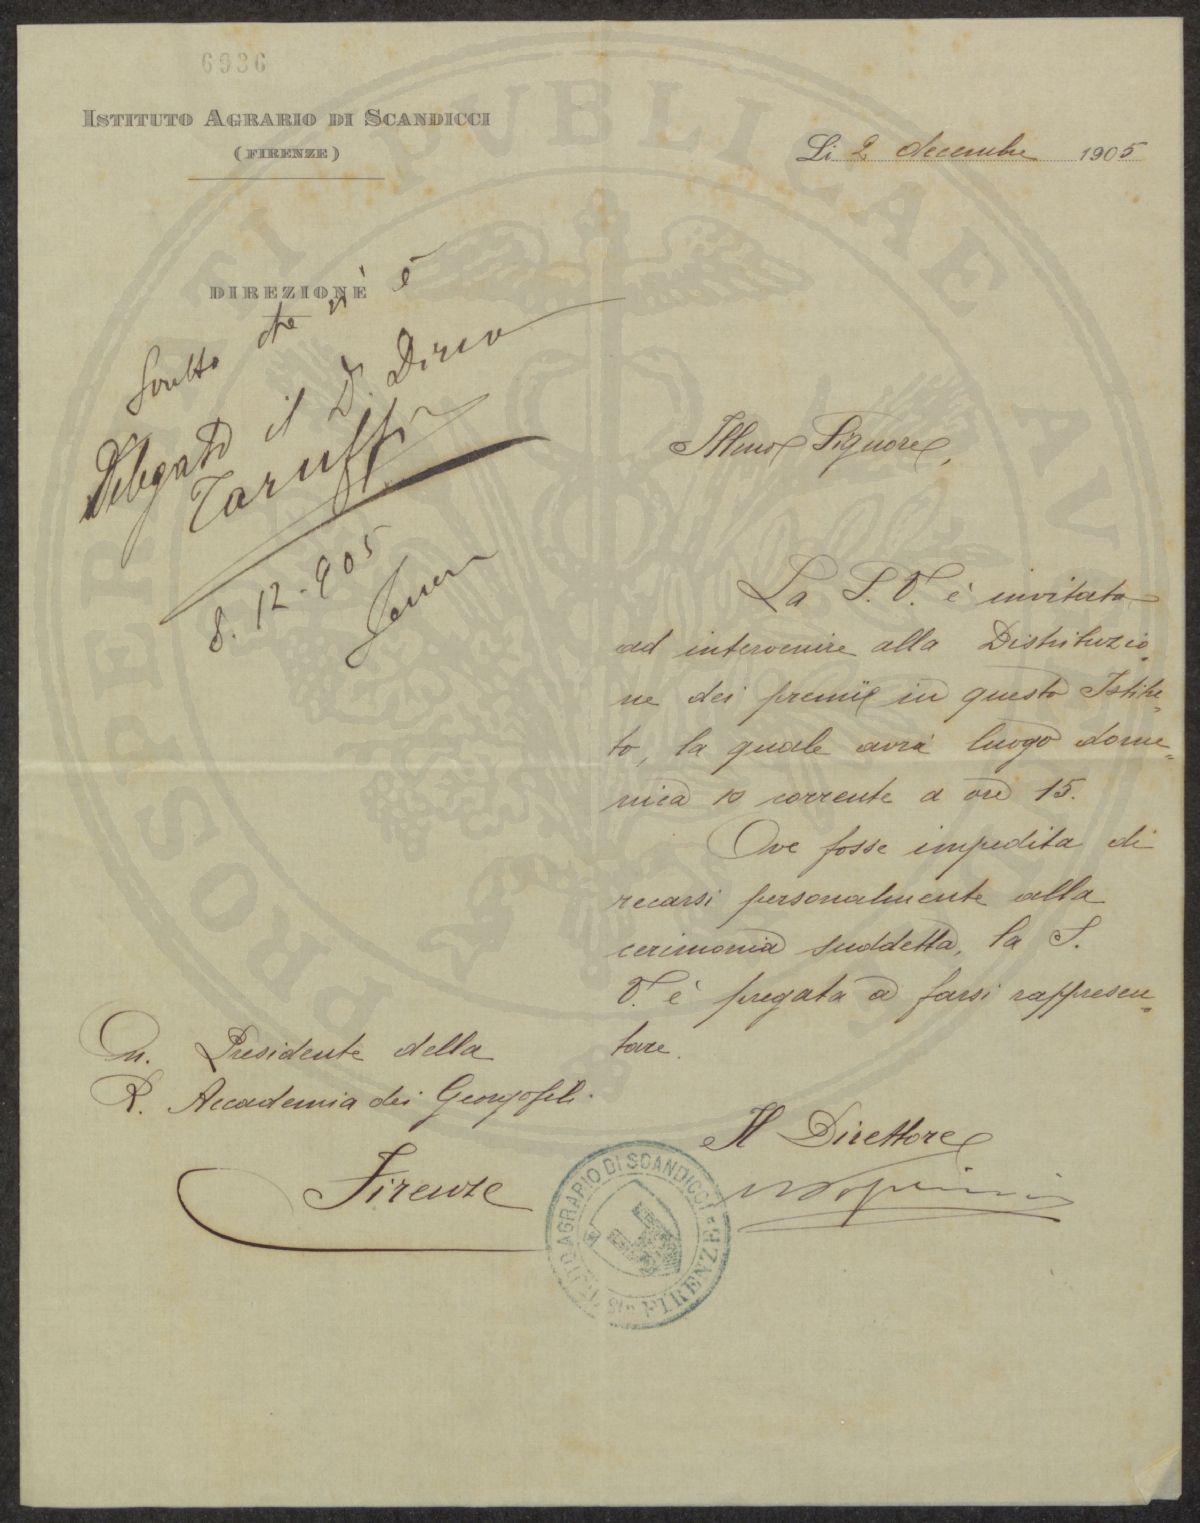 6936
ISTITUTO AGRARIO DI SCANDICCI
(FIRENZE)
Li 2 decembre 1905
DIREZIONE
Scritto che vi è
Delegato il D. Dino
Taruffi
8.12.905
Illmo Signore,
La S. V. è invitata
ad intervenire alla Distribuzio-
ne dei premii in questo Istitu-
to, la quale avrà luogo dome-
nica 10 corrente a ore 15.
Ove fosse impedita di
recarsi personalmente alla
cerimonia suddetta, la S.
V. è pregata a farsi rappresen-
tare.
On. Presidente della
R. Accademia dei Georgofili.
Firenze
Il Direttore
ISTITUTO AGRARIO DI SCANDICCI FIRENZE
PROSPERITATI PUBLICAE AU